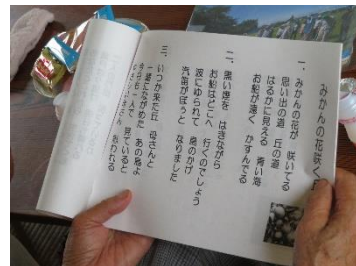 みかんの花咲く
一、みかんの花が 咲いてる
思い出の道 丘の道
はるかに見える 青い海
お船が遠く かすんでる
二、黒い煙を はきながら
お船はどこへ 行くのでしょう
波にゆられて 島のかげ
汽笛がぼうと なりました
三、いつか来た丘 母さんと
一緒にながめた あの島よ
今日も一人で 見ていると
思われる